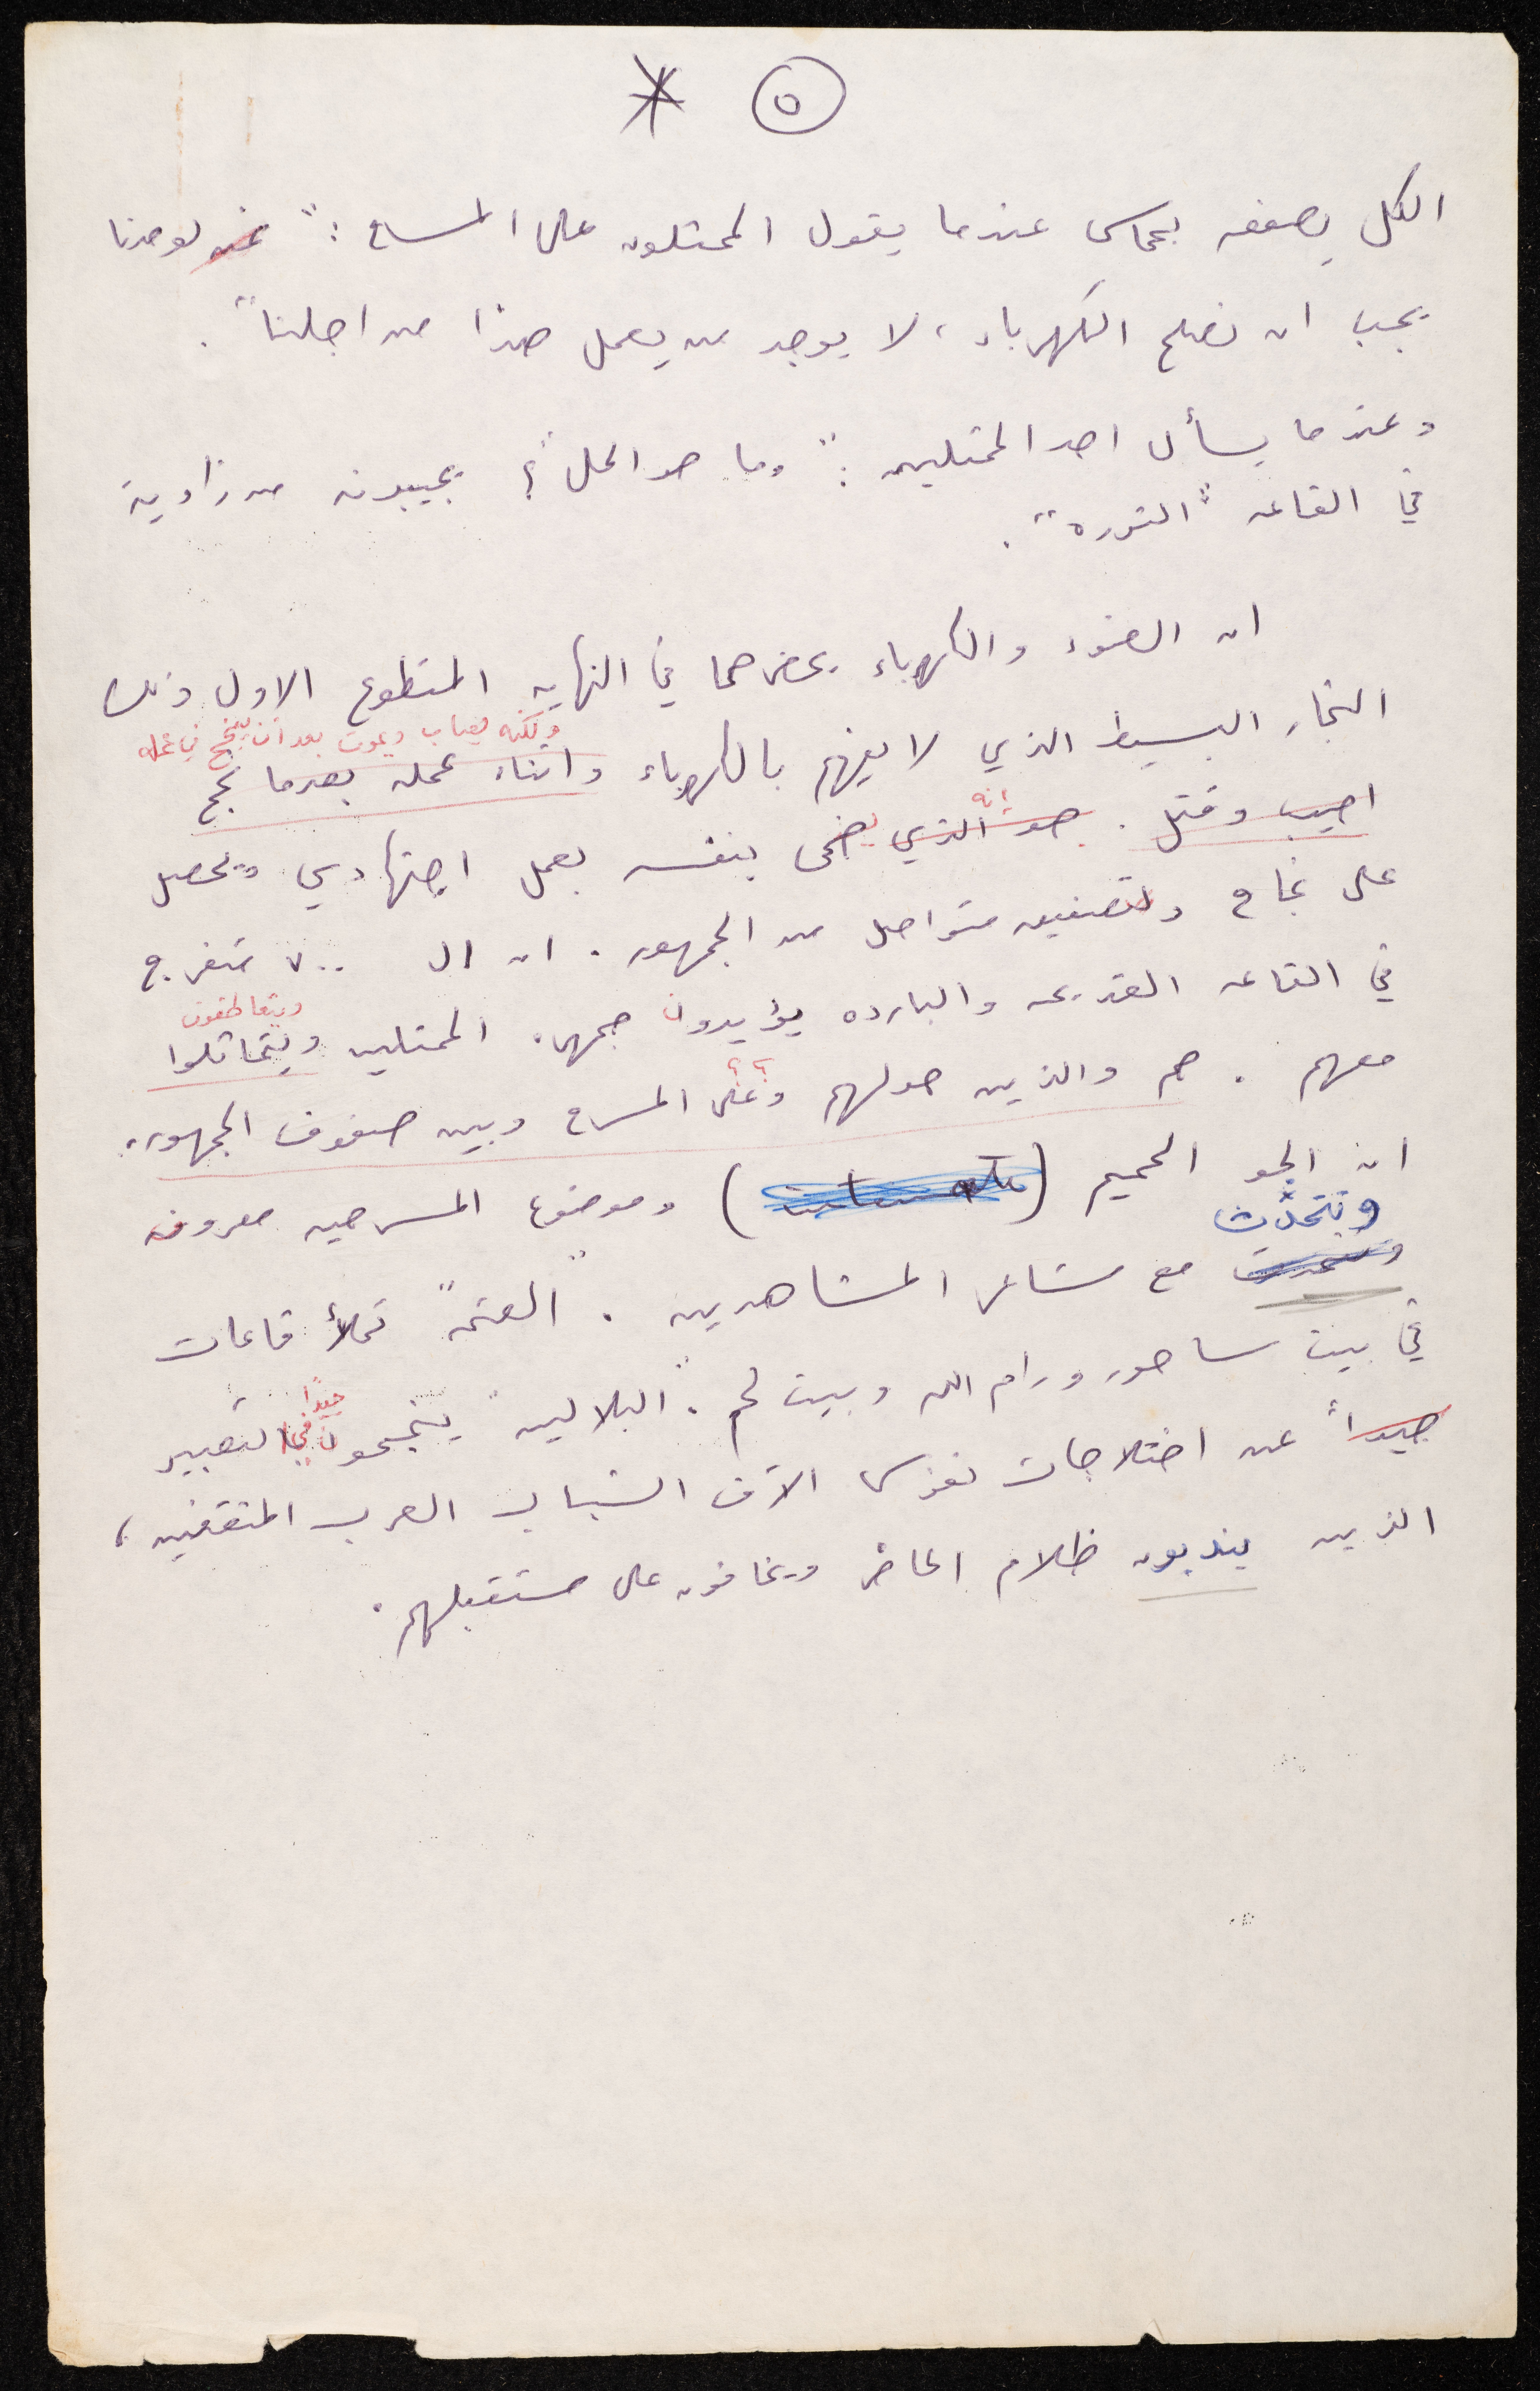 ٥ *
الكل يصفق بحماس عندما يقول الممثلون على المسرح : " نحن لوحدنا
يجب ان نصلح الكهرباء ، لا يوجد من يعمل هذا من اجلنا " .
وعندما يسأل احد الممثلين : " وما هو الحل " ؟ يجيبونه من زاوية
في القاعه " الثوره " .
ان الضوء والكهرباء يحضرهما في النهايه المتطوع الاول ذلك
ولكنه يصاب ويموت بعد أن ينجح في عمله
النجار البسيط الذي لا يفهم بالكهرباء واثناء عمله بعدما نجح
انه
اصيب وقتل . هو الذي يضحى بنفسه بعمل اجتهادي ويحصل
على نجاح وتصفيق متواصل من الجمهور . ان ال ٧٠٠ متفرج
ويتعاطفون
في القاعه القديمه والبارده يؤيدون جمهرة الممثلين ويتماثلوا
؟ ؟
معهم . هم والذين حولهم وعلى المسرح وبين صفوف الجمهور .
ان الجو الحميم ( ) وموضوع المسرحيه معروف
وتتحدث
مع مشاعر المشاهدين . " العتمة " تملأ قاعات
في بيت ساحور ورام الله وبيت لحم . " البلالين " ينجحون في التعبير
جيدًا
جيداً عن اختلاجات نفوس الآف الشباب العرب المثقفين ،
الذين يندبون ظلام الحاضر ويخافون على مستقبلهم .